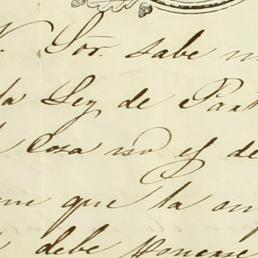 Sor. sabe
la Ley de Part
cosa no es de
que la
debe ponerse